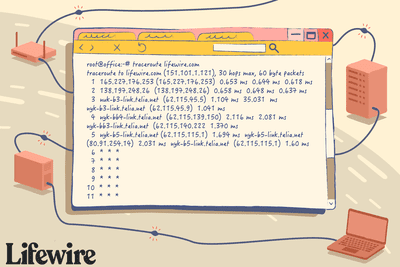 root@office:~# traceroute lifewire.com
traceroute to lifewire.com (151.101.1.121), 30 hops max, 60 byte packets
1 165.227.176.253 (165.227.176.253) 0.653 ms 0.644 ms 0.618 ms
2 138.199.248.26 (138.199.248.26) 0.658 ms 0.648 ms 0.634 ms
3 nyk-b3-link.telia.net (62.115.45.5) 1.104 ms 35.031 ms
nyk-b3-link.telia.net (62.115.45.9) 1.041 ms
4 nyk-bb4-link.telia.net (62.115.139.150) 2.116 ms 2.081 ms
nyk-bb3-link.telia.net (62.115.140.222) 1.370 ms
5 nyk-b5-link.telia.net (62.115.115.1) 1.694 ms nyk-b5-link.telia.net
(80.91.254.14) 2.031 ms nyk-b5-link.telia.net (62.115.115.1) 1.60 ms
6 * * *
7 * * *
8 * * *
9 * * *
10 * * *
11 * * *
Lifewire